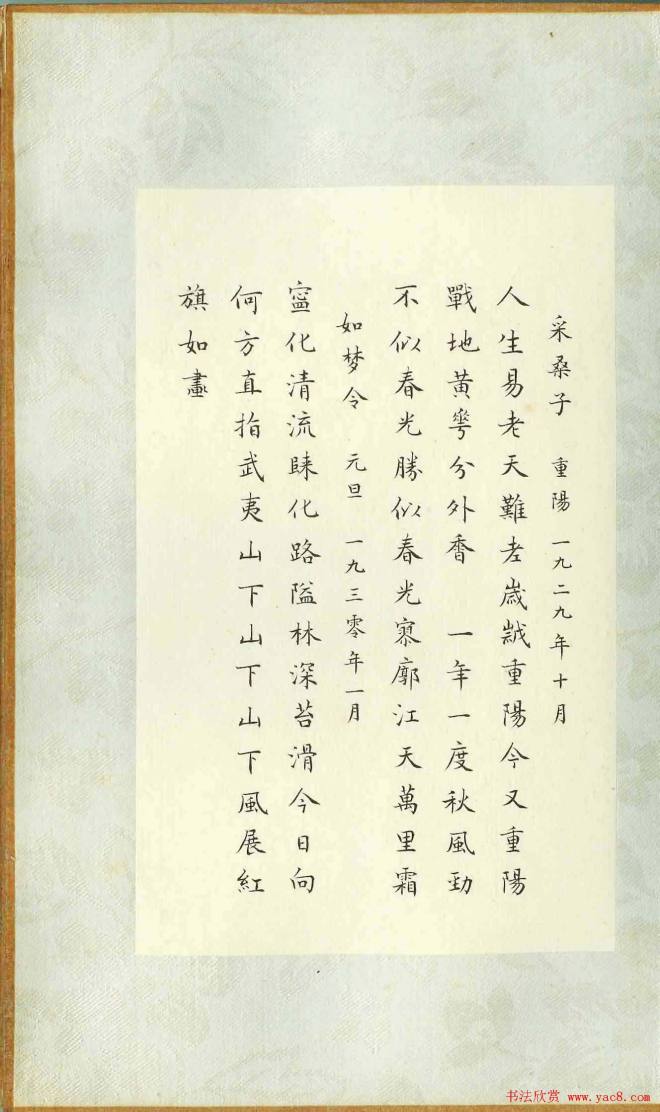 采桑子 重陽 一九二九年十月
人生易老天難老歲歲重陽今又重陽
戰地黃花分外香 一年一度秋風勁
不似春光勝似春光寥廓江天萬里霜
如梦令 元旦 一九三零年一月
寧化清流歸化路隘林深苔滑今日向
何方直指武夷山下山下山下風展紅
旗如畫
书法欣赏 www.yac8.com